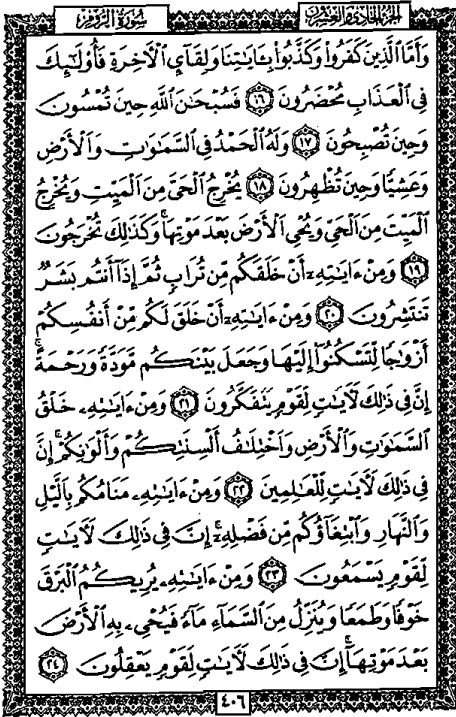 الجزء الحادي والعشرون سُورَةُ الرُّومِ
وَأَمَّا الَّذِينَ كَفَرُوا۟ وَكَذَّبُوا۟ بِـَٔايَـٰتِنَا وَلِقَآئِ الْـَٔاخِرَةِ فَأُو۟لَـٰٓئِكَ
فِى الْعَذَابِ مُحْضَرُونَ ١٦ فَسُبْحَـٰنَ اللَّهِ حِينَ تُمْسُونَ
وَحِينَ تُصْبِحُونَ ١٧ وَلَهُ الْحَمْدُ فِى السَّمَـٰوَٰتِ وَالْأَرْضِ
وَعَشِيًّا وَحِينَ تُظْهِرُونَ ١٨ يُخْرِجُ الْحَىَّ مِنَ الْمَيِّتِ وَيُخْرِجُ
الْمَيِّتَ مِنَ الْحَىِّ وَيُحْىِ الْأَرْضَ بَعْدَ مَوْتِهَا ۚ وَكَذَٰلِكَ تُخْرَجُونَ
١٩ وَمِنْ ءَايَـٰتِهِۦٓ أَنْ خَلَقَكُم مِّن تُرَابٍ ثُمَّ إِذَآ أَنتُم بَشَرٌ
تَنتَشِرُونَ ٢٠ وَمِنْ ءَايَـٰتِهِۦٓ أَنْ خَلَقَ لَكُم مِّنْ أَنفُسِكُمْ
أَزْوَٰجًا لِّتَسْكُنُوٓا۟ إِلَيْهَا وَجَعَلَ بَيْنَكُم مَّوَدَّةً وَرَحْمَةً ۚ
إِنَّ فِى ذَٰلِكَ لَـَٔايَـٰتٍ لِّقَوْمٍ يَتَفَكَّرُونَ ٢١ وَمِنْ ءَايَـٰتِهِۦ خَلْقُ
السَّمَـٰوَٰتِ وَالْأَرْضِ وَاخْتِلَـٰفُ أَلْسِنَتِكُمْ وَأَلْوَٰنِكُمْ ۚ إِنَّ
فِى ذَٰلِكَ لَـَٔايَـٰتٍ لِّلْعَـٰلِمِينَ ٢٢ وَمِنْ ءَايَـٰتِهِۦ مَنَامُكُم بِالَّيْلِ
وَالنَّهَارِ وَابْتِغَآؤُكُم مِّن فَضْلِهِۦٓ ۚ إِنَّ فِى ذَٰلِكَ لَـَٔايَـٰتٍ
لِّقَوْمٍ يَسْمَعُونَ ٢٣ وَمِنْ ءَايَـٰتِهِۦ يُرِيكُمُ الْبَرْقَ
خَوْفًا وَطَمَعًا وَيُنَزِّلُ مِنَ السَّمَآءِ مَآءً فَيُحْىِۦ بِهِ الْأَرْضَ
بَعْدَ مَوْتِهَآ ۚ إِنَّ فِى ذَٰلِكَ لَـَٔايَـٰتٍ لِّقَوْمٍ يَعْقِلُونَ ٢٤
٤٠٦